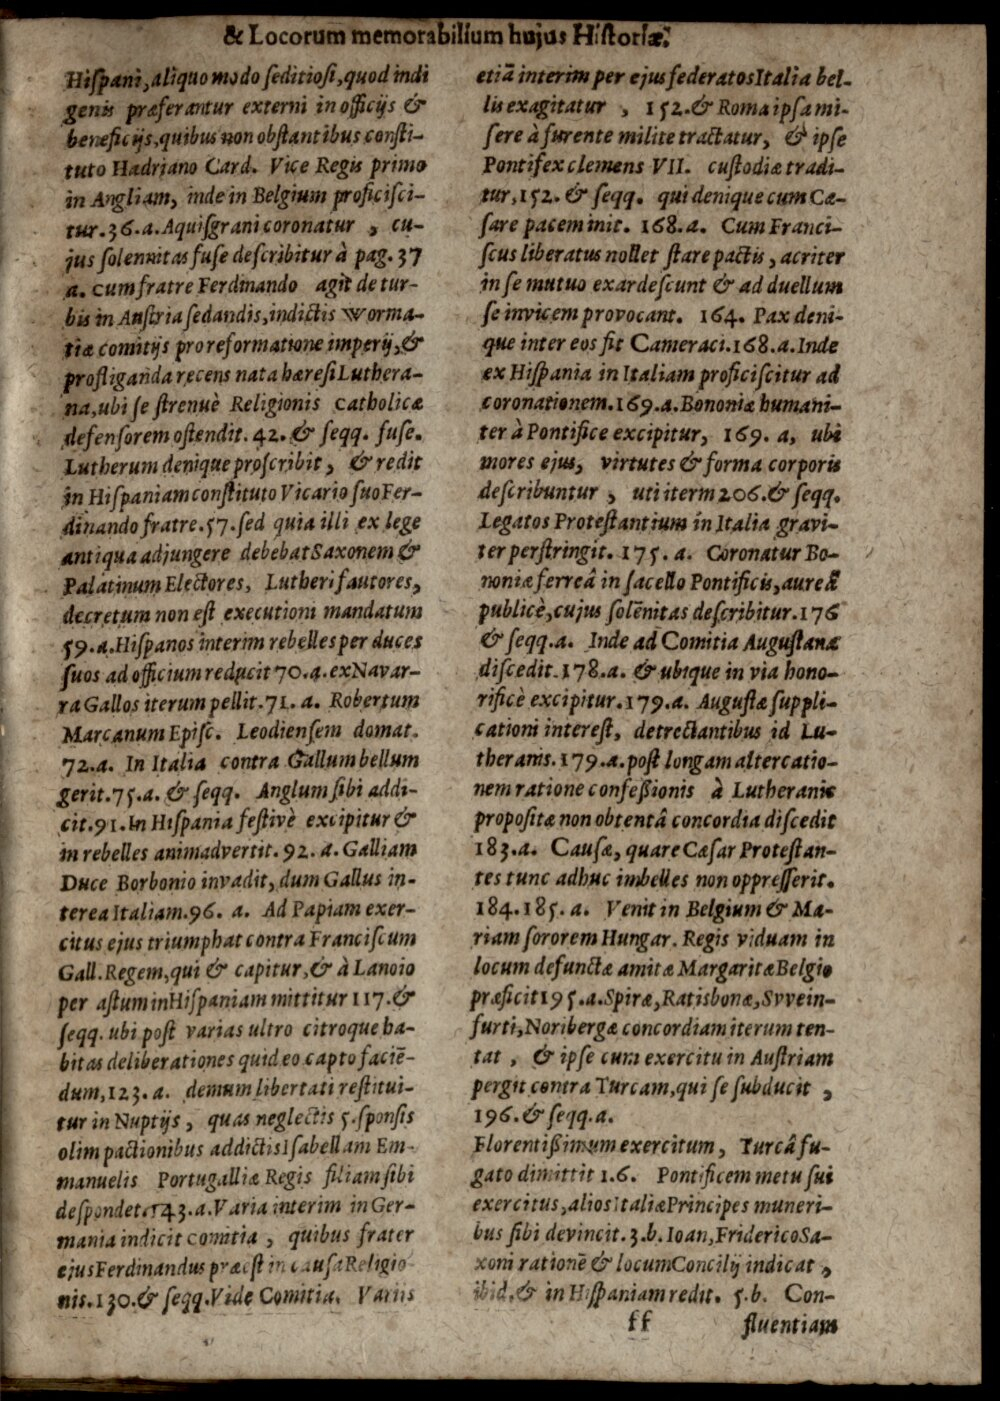 & Locorum memorabilium hujus Historiæ.
Hiſpani, aliquo modo ſeditioſi, quod indi
genis præferantur externi in officijs &
beneficijs, quibus non obſtantibus conſti-
tuto Hadriano Card. Vice Regis primo
in Angliam, inde in Belgium proficiſci-
tur. 36. a. Aquiſgrani coronatur , cu-
jus ſolennitas fuſe deſcribitur à pag. 37
a. cum fratre Ferdinando agit de tur-
bis in Auſtria ſedandis, indictis Worma-
tiæ comitijs pro reformatione imperij, &
profliganda recens nata hæreſi Luthera-
na, ubi ſe ſtrenuè Religionis Catholicæ
defenſorem oſtendit. 42. & ſeqq. fuſe.
Lutherum denique proſcribit , & redit
in Hiſpaniam conſtituto Vicario ſuo Fer-
dinando fratre. 57. ſed quia illi ex lege
antiqua adjungere debebat Saxonem &
Palatinum Electores, Lutheri fautores,
decretum non eſt executioni mandatum
59. a. Hiſpanos interim rebelles per duces
ſuos ad officium reducit 70. a. ex Navar-
ra Gallos iterum pellit. 71. a. Robertum
Marcanum Epiſc. Leodienſem domat.
72. a. In Italia contra Gallum bellum
gerit. 75. a. & ſeqq. Anglum ſibi addi-
cit. 91. In Hiſpania feſtivè excipitur &
in rebelles animadvertit. 92. a. Galliam
Duce Borbonio invadit, dum Gallus in-
terea Italiam. 96. a. Ad Papiam exer-
citus ejus triumphat contra Franciſcum
Gall. Regem, qui & capitur, & à Lanoio
per aſtum in Hiſpaniam mittitur 117. &
ſeqq. ubi poſt varias ultro citroque ha-
bitas deliberationes quid eo capto faciē-
dum, 123. a. demum libertati reſtitui-
tur in Nuptijs , quas neglectis 5. ſponſis
olim pactionibus addictis Iſabellam Em-
manuelis Portugalliæ Regis filiam ſibi
deſpondet. 143. a. Varia interim in Ger-
mania indicit comitia , quibus frater
ejus Ferdinandus præeſt in cauſa Religio
nis. 130. & ſeqq. Vide Comitia. Variis
etiā interim per ejus federatos Italia bel-
lis exagitatur , 152. & Roma ipſa mi-
ſere à furente milite tractatur, & ipſe
Pontifex clemens VII. cuſtodiæ tradi-
tur, 152. & ſeqq. qui denique cum Cæ-
ſare pacem init. 168. a. Cum Franci-
ſcus liberatus nollet ſtare pactis , acriter
in ſe mutuo exardeſcunt & ad duellum
ſe invicem provocant. 164. Pax deni-
que inter eos fit Cameraci. 168. a. Inde
ex Hiſpania in Italiam proficiſcitur ad
coronationem. 169. a. Bononiæ humani-
ter à Pontifice excipitur, 169. a, ubi
mores ejus, virtutes & forma corporis
deſcribuntur , uti iterm 206. & ſeqq.
Legatos Proteſtantium in Italia gravi-
ter perſtringit. 175. a. Coronatur Bo-
noniæ ferreâ in ſacello Pontificis, aureâ
publicè, cujus ſolēnitas deſcribitur. 176
& ſeqq. a. Inde ad Comitia Auguſtana
diſcedit. 178. a. & ubique in via hono-
rificè excipitur. 179. a. Auguſtæ ſuppli-
cationi intereſt, detrectantibus id Lu-
theranis. 179. a. poſt longam altercatio-
nem ratione confeſſionis à Lutheranis
propoſitæ non obtentâ concordia diſcedit
183. a. Cauſæ, quare Cæſar Proteſtan-
tes tunc adhuc imbelles non oppreſſerit.
184. 185. a. Venit in Belgium & Ma-
riam ſororem Hungar. Regis viduam in
locum defunctæ amitæ Margaritæ Belgio
præficit 195. a. Spiræ, Ratisbonæ, Svvein-
furti, Noribergæ concordiam iterum ten-
tat , & ipſe cum exercitu in Auſtriam
pergit contra Turcam, qui ſe ſubducit ,
196. & ſeqq. a.
Florentißimum exercitum, Turcâ fu-
gato dimittit 1. 6. Pontificem metu ſui
exercitus, alios Italiæ Principes muneri-
bus ſibi devincit. 3. b. Ioan, Friderico Sa-
xoni rationē & locum Concilij indicat ,
ibid. & in Hiſpaniam redit. 5. b. Con-
ff fluentiam